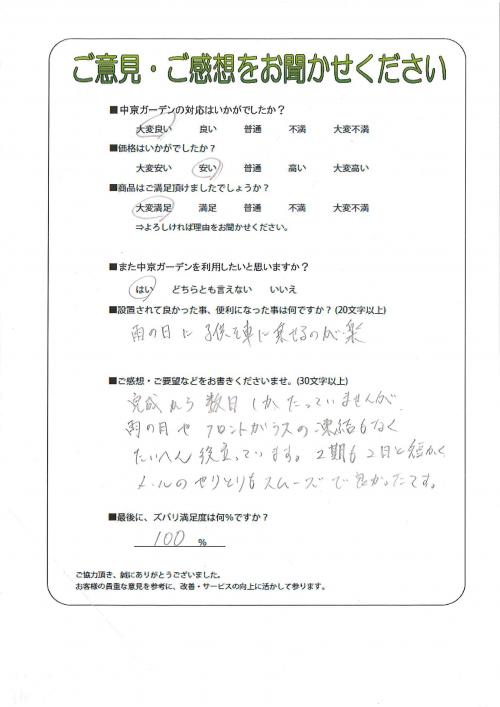 ご意見・ご感想をお聞かせください
■中京ガーデンの対応はいかがでしたか？
大変良い 良い 普通 不満 大変不満
■価格はいかがでしたか？
大変安い 安い 普通 高い 大変高い
■商品はご満足頂けましたでしょうか？
大変満足 満足 普通 不満 大変不満
⇒よろしければ理由をお聞かせください。
■また中京ガーデンを利用したいと思いますか？
はい どちらとも言えない いいえ
■設置されて良かった事、便利になった事は何ですか？(20文字以上)
雨の日に子供を車に乗せるのが楽
■ご感想・ご要望などをお書きくださいませ。(30文字以上)
完成から数日しかたっていませんが、
雨の日やフロントガラスの凍結もなく
たいへん役立っています。工期も2日と短かく
メールのやりとりもスムーズで良かったです。
■最後に、ズバリ満足度は何%ですか？
100 %
ご協力頂き、誠にありがとうございました。
お客様の貴重な意見を参考に、改善・サービスの向上に活かして参ります。